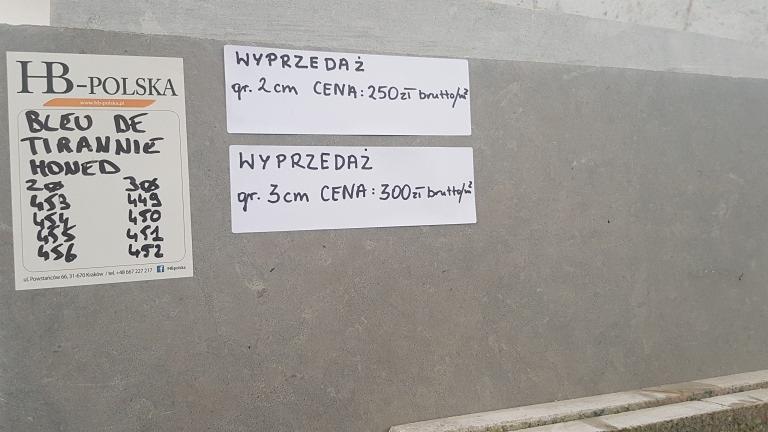 HB-POLSKA
www.hb-polska.pl
BLEU DE
TIRANNIE
HONED
2Ø 3Ø
453 449
454 450
455 451
456 452
ul. Powstańców 66, 31-670 Kraków / tel. +48 667 227 217 f HBpolska
WYPRZEDAŻ
gr. 2cm CENA: 250zł brutto/m²
WYPRZEDAŻ
gr. 3cm CENA: 300zł brutto/m²